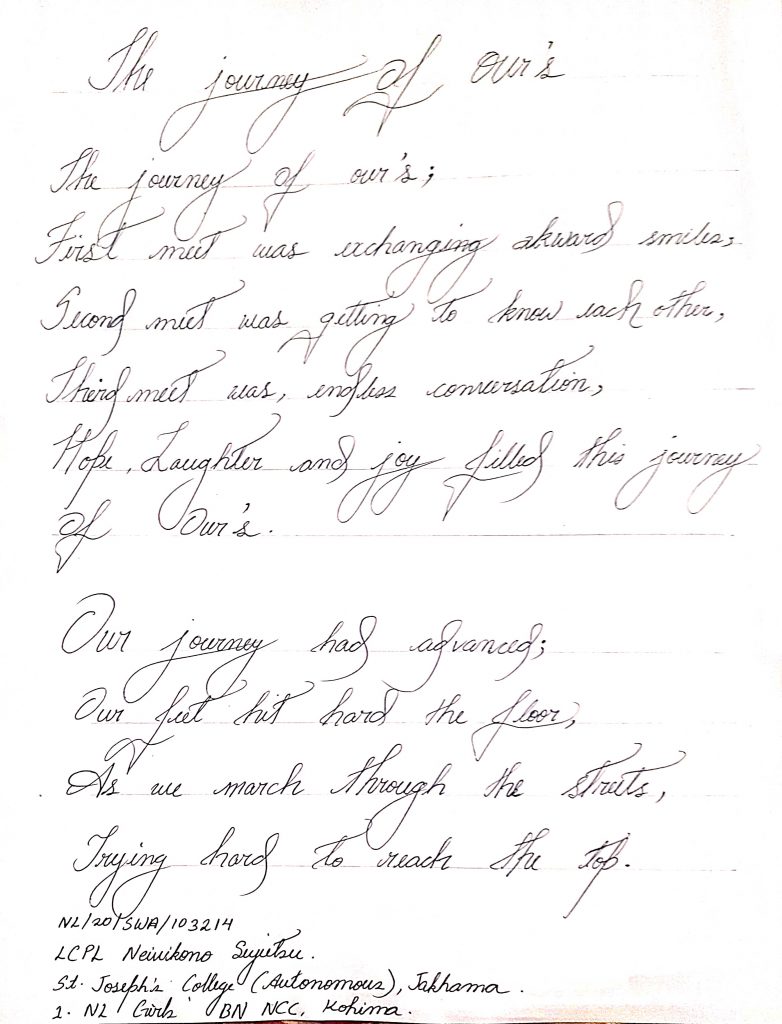 The journey of Our's
The journey of our's;
First meet was exchanging akward smiles,
Second meet was getting to know each other,
Third meet was, endless conversation,
Hope, Laughter and joy filled this journey
of Our's.
Our journey had advanced;
Our feet hit hard the floor,
As we march through the streets,
Trying hard to reach the top.
NL/20/SWA/103214
LCPL Neivikono
St. Joseph's College (Autonomous), Jakhama.
1. NL Girls' BN NCC, Kohima.